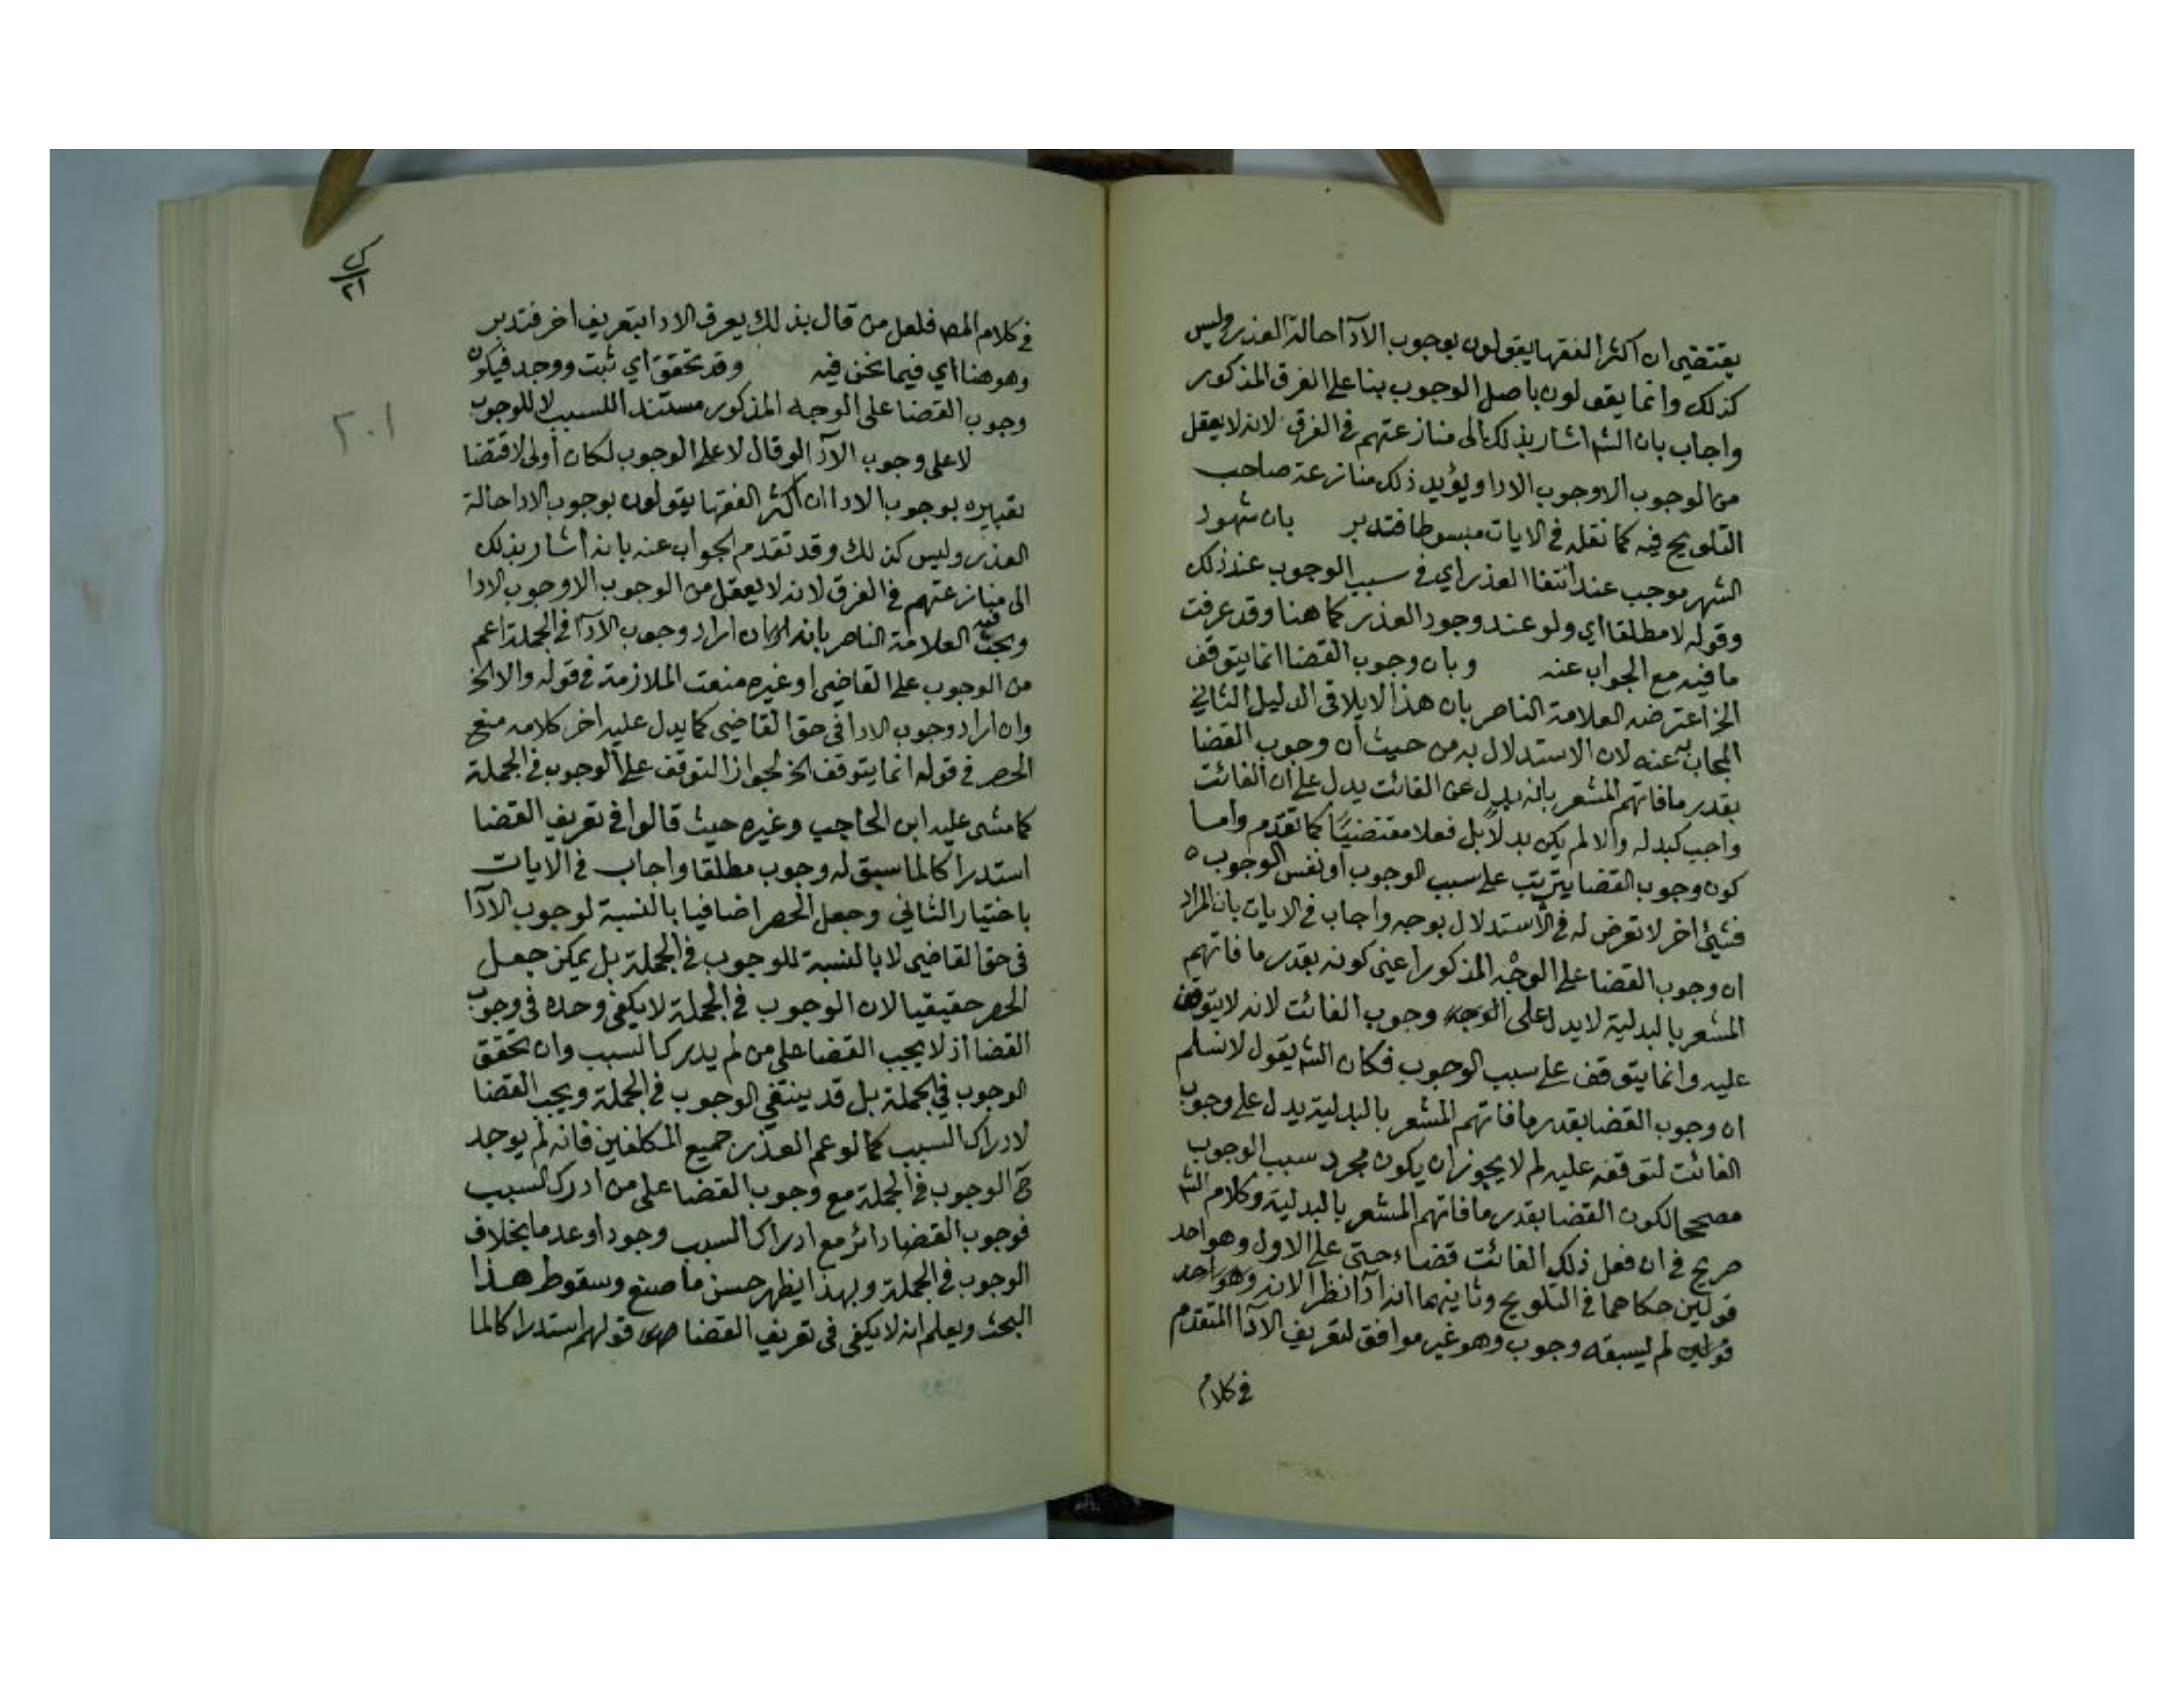 يقتضي ان اكثر الفقها يقولون بوجوب الادآ احالة العذر وليس
كذلك وانما يقولون باصل الوجوب بنا على الفرق المذكور
واجاب بان الشه اشار بذلك الى منازعتهم في الفرق لانه لا يعقل
من الوجوب الا وجوب الادا ويؤيد ذلك منازعة صاحب
التلويح فيه كما نقله في الايات مبسوطا فتدبر بان شهود
الشهر موجب عند انتفا العذر اي في سبب الوجوب عند ذلك
وقوله لا مطلقا اي ولو عند وجود العذر كما هنا وقد عرفت
ما فيه مع الجواب عنه وبان وجوب القضا انما يتوقف
الخ اعترضه العلامة الناصر بان هذا لا يلاقي الدليل الثاني
المجاب به عنه لان الاستدلال به من حيث ان وجوب القضا
بقدر ما فاتهم المشعر بانه بدل عن الفائت يدل على ان الفائت
واجب كبدله والا لم يكن بدلا بل فعلا مقتضيا كما تقدم واما
كون وجوب القضا يترتب على سبب الوجوب او نفس الوجوب
فشيئ اخر لا تعرض له في الاستدلال بوجه واجاب في الايات بان المراد
ان وجوب القضا على الوجه المذكور اعني كونه بقدر ما فاتهم
المشعر بالبدلية لا يدل على وجوب الفائت لانه لا يتوقف
عليه وانما يتوقف على سبب الوجوب فكان الشه يقول لا نسلم
ان وجوب القضا بقدر ما فاتهم المشعر بالبدلية يدل على وجوب
الفائت لتوقفه عليه لم لا يجوز ان يكون مجرد سبب الوجوب
مصححا لكون القضا بقدر ما فاتهم المشعر بالبدلية وكلام الشه
صريح في ان فعل ذلك الفائت قضاء حتى على الاول وهو احد
قولين حكاهما في التلويح وثانيهما انه ادآ نظرا لانه
لم يسبقه وجوب وهو غير موافق لتعريف الادآ المتقدم
في كلام
٢٠١
في كلام المصـ فلعل من قال بذلك يعرف الادا بتعريف اخر فتدبر
وهو هنا اي فيما نحن فيه وقد تحقق اي ثبت ووجد فيكون
وجوب القضا على الوجه المذكور مستندا للسبب لا للوجوب
لا على وجوب الادآ لو قال لا على الوجوب لكان أولى لاقتضا
تعبيره بوجوب الادا ان اكثر الفقها يقولون بوجوب الادا حالة
العذر وليس كذلك وقد تقدم الجواب عنه بانه اشار بذلك
الى منازعتهم في الفرق لانه لا يعقل من الوجوب الا وجوب الادا
وبحث فيه العلامة الناصر بانه ان اراد وجوب الادآ في الجملة اعم
من الوجوب على القاضي او غيره منعت الملازمة في قوله والا الخ
وان اراد وجوب الادا في حق القاضي كما يدل عليه اخر كلامه منع
الحصر في قوله انما يتوقف الخ لجواز التوقف على الوجوب في الجملة
كما مشى عليه ابن الحاجب وغيره حيث قالوا في تعريف القضا
استدراكا لما سبق له وجوب مطلقا واجاب في الايات
باختيار الثاني وجعل الحصر اضافيا بالنسبة لوجوب الادآ
في حق القاضي لا بالنسبة للوجوب في الجملة بل يمكن جعل
الحصر حقيقيا لان الوجوب في الجملة لا يكفي وحده في وجوب
القضا اذ لا يجب القضا على من لم يدرك السبب وان تحقق
الوجوب في الجملة بل قد ينتفي الوجوب في الجملة ويجب القضا
لادراك السبب كما لو عم العذر جميع المكلفين فانه لم يوجد
ح الوجوب في الجملة مع وجوب القضا على من ادرك السبب
فوجوب القضا دائر مع ادراك السبب وجودا وعدما بخلاف
الوجوب في الجملة وبهذا يظهر حسن ما صنع وسقوط هذا
البحث ويعلم انه لا يكفي في تعريف القضا قولهم استدراكا لما